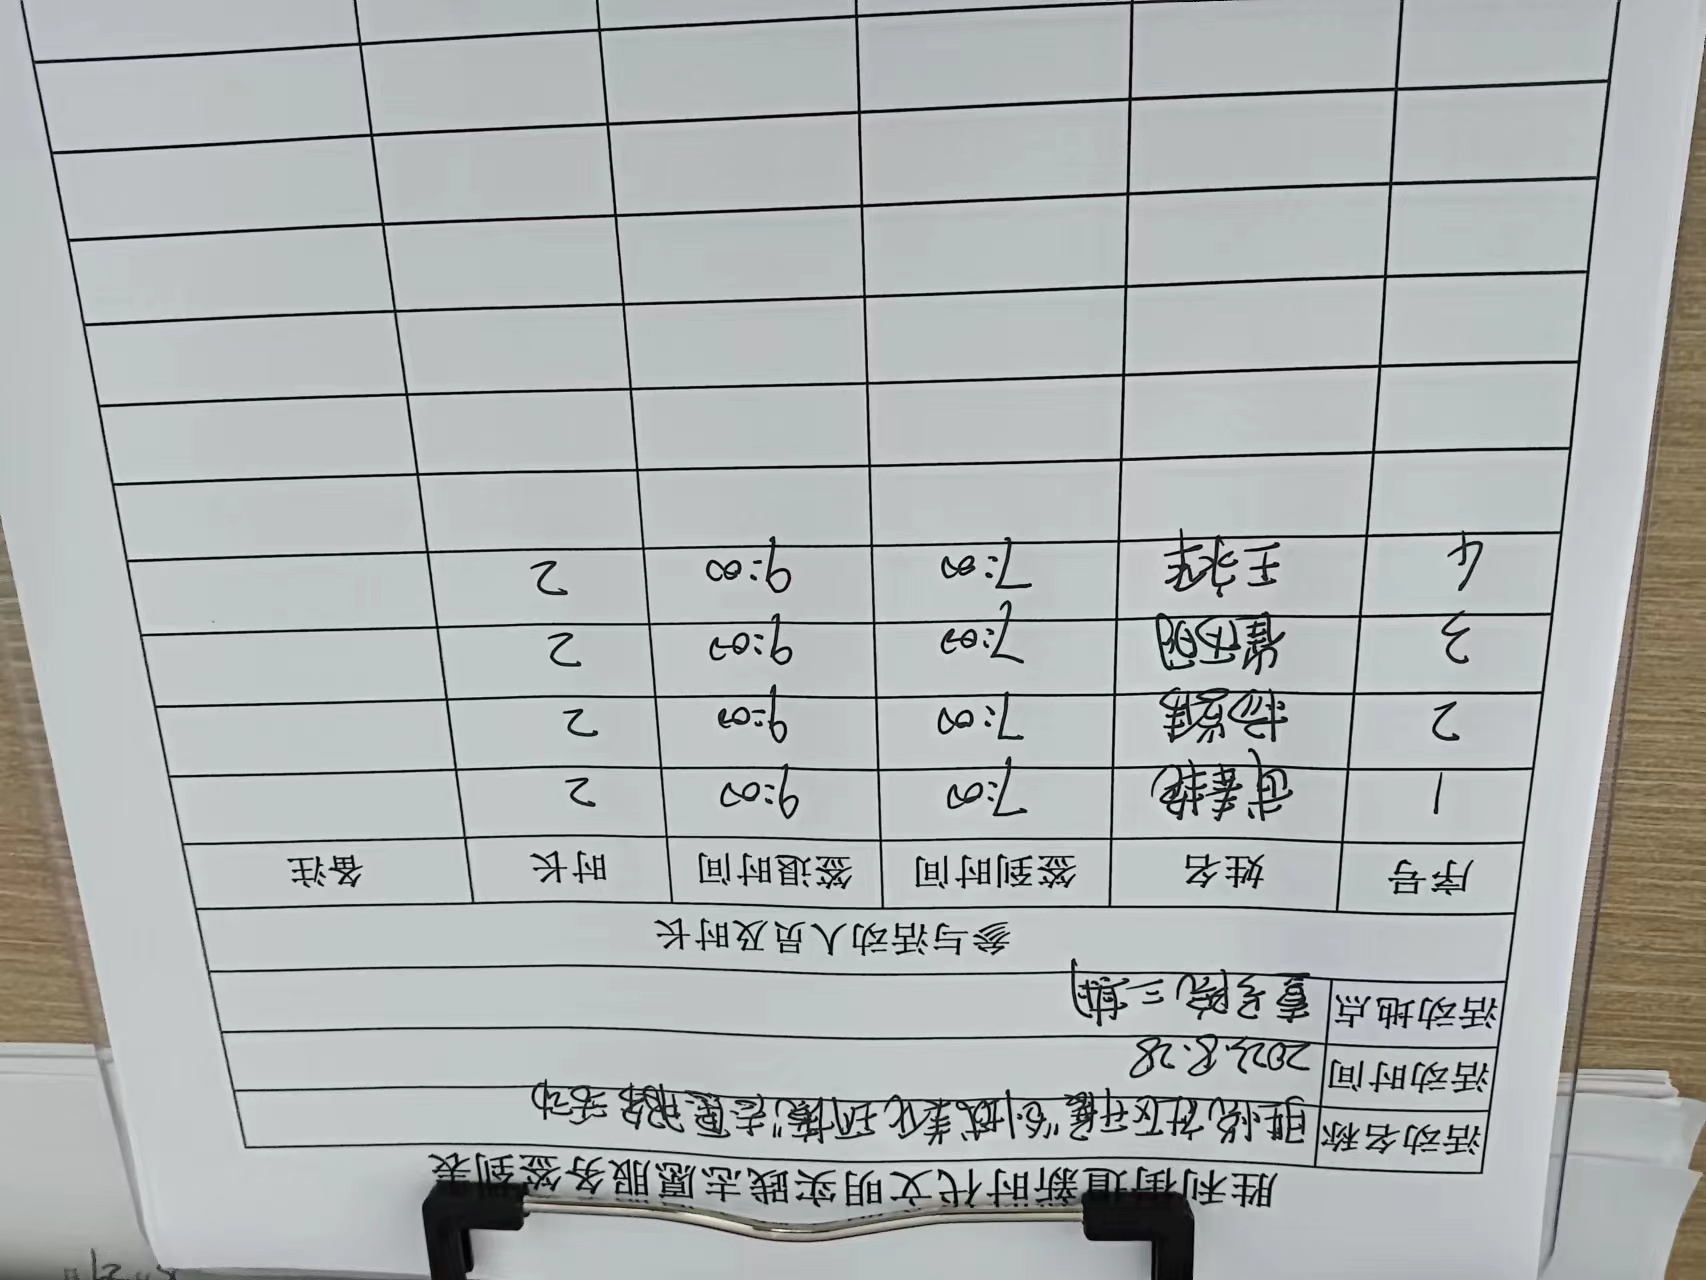 胜利街道新时代文明实践志愿服务签到表
活动名称 胜悦社区开展“创城美化环境”志愿服务活动
活动时间 2023.8.28
活动地点 壹号院三期
参与活动人员及时长
序号 姓名 签到时间 签退时间 时长 备注
1 武春艳 7:00 9:00 2
2 7:00 9:00 2
3 崔丙明 7:00 9:00 2
4 王永军 7:00 9:00 2